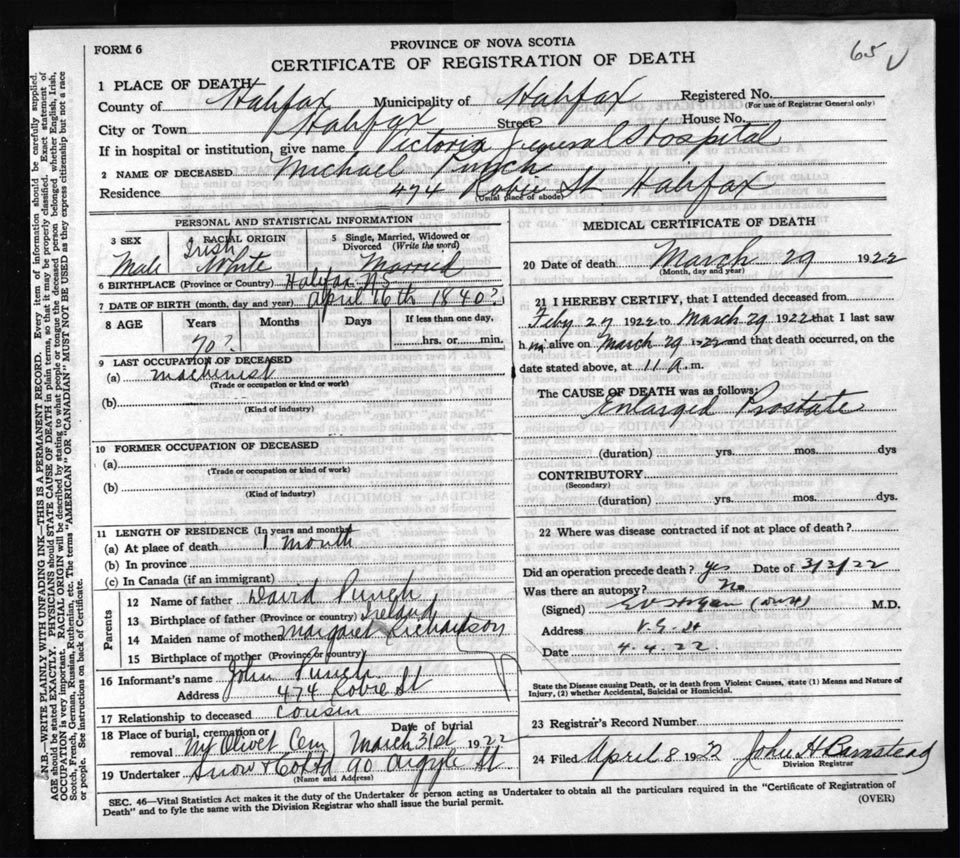 65
FORM 6
PROVINCE OF NOVA SCOTIA
CERTIFICATE OF REGISTRATION OF DEATH
1 PLACE OF DEATH
County of Halifax Municipality of Halifax Registered No.
(For use of Registrar General only)
City or Town Halifax Street House No.
If in hospital or institution, give name Victoria General Hospital
2 NAME OF DECEASED Michael Punch
Residence 474 Robie St Halifax
(Usual place of abode)
PERSONAL AND STATISTICAL INFORMATION
3 SEX Male
RACIAL ORIGIN Irish White
5 Single, Married, Widowed or Divorced (Write the word) Married
6 BIRTHPLACE (Province or Country) Halifax NS
7 DATE OF BIRTH (month, day and year) April 16th 1840?
8 AGE Years Months Days If less than one day,
70? hrs. or min.
9 LAST OCCUPATION OF DECEASED
(a) Machenist
(Trade or occupation or kind or work)
(b)
(Kind of industry)
10 FORMER OCCUPATION OF DECEASED
(a)
(Trade or occupation or kind of work)
(b)
(Kind of industry)
11 LENGTH OF RESIDENCE (In years and months)
(a) At place of death 1 Month
(b) In province
(c) In Canada (if an immigrant)
Parents
12 Name of father David Punch
13 Birthplace of father (Province or country) Ireland
14 Maiden name of mother Margaret Richardson
15 Birthplace of mother (Province or country)
16 Informant's name John Punch
Address 474 Robie St
17 Relationship to deceased Cousin
18 Place of burial, cremation or removal Mt Olivet Cem
Date of burial March 31st 1922
19 Undertaker Snow & Co Ltd 90 Argyle St
(Name and Address)
MEDICAL CERTIFICATE OF DEATH
20 Date of death March 29 1922
(Month, day and year)
21 I HEREBY CERTIFY, that I attended deceased from
Feby 27 1922 to March 29 1922 that I last saw
him alive on March 29 1922 and that death occurred, on the
date stated above, at 11 a.m.
The CAUSE OF DEATH was as follows:
Enlarged Prostate
(duration) yrs. mos. dys
CONTRIBUTORY
(Secondary)
(duration) yrs. mos. dys.
22 Where was disease contracted if not at place of death?
Did an operation precede death? yes Date of 3/2/22
Was there an autopsy? No
(Signed) M.D.
Address V.G.H
Date 4.4.22.
State the Disease causing Death, or in death from Violent Causes, state (1) Means and Nature of
Injury, (2) whether Accidental, Suicidal or Homicidal.
23 Registrar's Record Number
24 Filed April 8 1922 John H Barnstead
Division Registrar
SEC. 46—Vital Statistics Act makes it the duty of the Undertaker or person acting as Undertaker to obtain all the particulars required in the "Certificate of Registration of
Death" and to fyle the same with the Division Registrar who shall issue the burial permit.
(OVER)
N.B.—WRITE PLAINLY WITH UNFADING INK—THIS IS A PERMANENT RECORD. Every item of information should be carefully supplied.
AGE should be stated EXACTLY. PHYSICIANS should STATE CAUSE OF DEATH in plain terms, so that it may be properly classified. Exact statement of
OCCUPATION is very important. RACIAL ORIGIN will be described by stating to what people or tongue the deceased person belonged whether English, Irish,
Scotch, French, German, Russian, Ruthenian, etc. The terms "AMERICAN" OR "CANADIAN" MUST NOT BE USED as they express citizenship but not a race
or people. See instructions on back of Certificate.